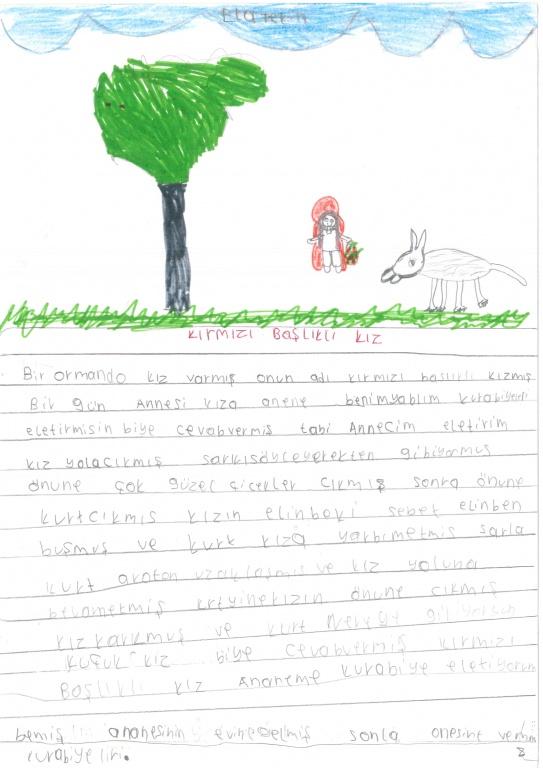 KIRMIZI BAŞLIKLI KIZ
Bir ormando kız varmış onun adı kırmızı başlıklı kızmış
Bir gün Annesi kıza anene benimyablım kurabiyeleri
eletirmisin biye cevabvermiş tabi Annecim eletirim
kız yolacıkmış sarkısöyleyerekten gibiyormuş
önüne çok güzel çicekler cıkmış sonra önüne
kurtcıkmıs kızın elinbeki sebet elinben
buşmuş ve kurt kıza yarbımetmiş sarla
kurt araton uzaklaşmış ve kız yoluna
bevametmiş kızın önüne cıkmış
kızkarkmuş ve kurt Nereye gibiyorsun
kuçuk kız biye cevabvermiş kırmızı
BAŞLIKLI kız Ananeme kurabiye eletiyorum
bemiş ananesinin evinegelmiş sonla anesine
8